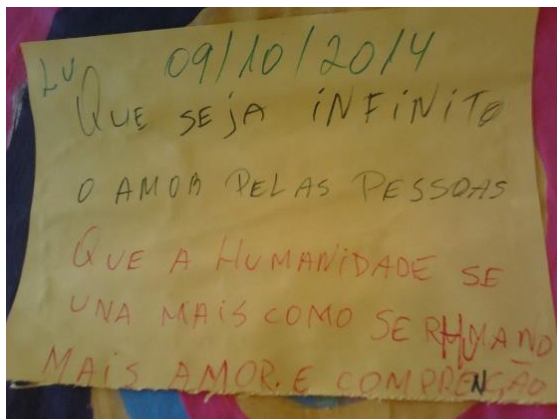 LU 09/10/2014
QUE SEJA INFINITO
O AMOR PELAS PESSOAS
QUE A HUMANIDADE SE
UNA MAIS COMO SER HUMANO
MAIS AMOR. E COMPRENÇÃO